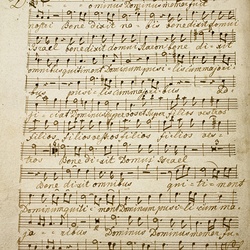 Dominus Dominus memor fuit
nostri Bene dixit no bis benedixit domui
Israel benedixit domui Aaron bene di xit
omnibus qui timent Dominum pusi llis cum majori
bus pusi llis cum majoribus
ciat Dominus super vos super filios vestros
filios filios vestros filios ves
tros Bene di xit Domui Israel
Bene dixit omnibus qui timent
Dominum qui timent Dominum pusillis cum ma
joribus Dominus memor fu